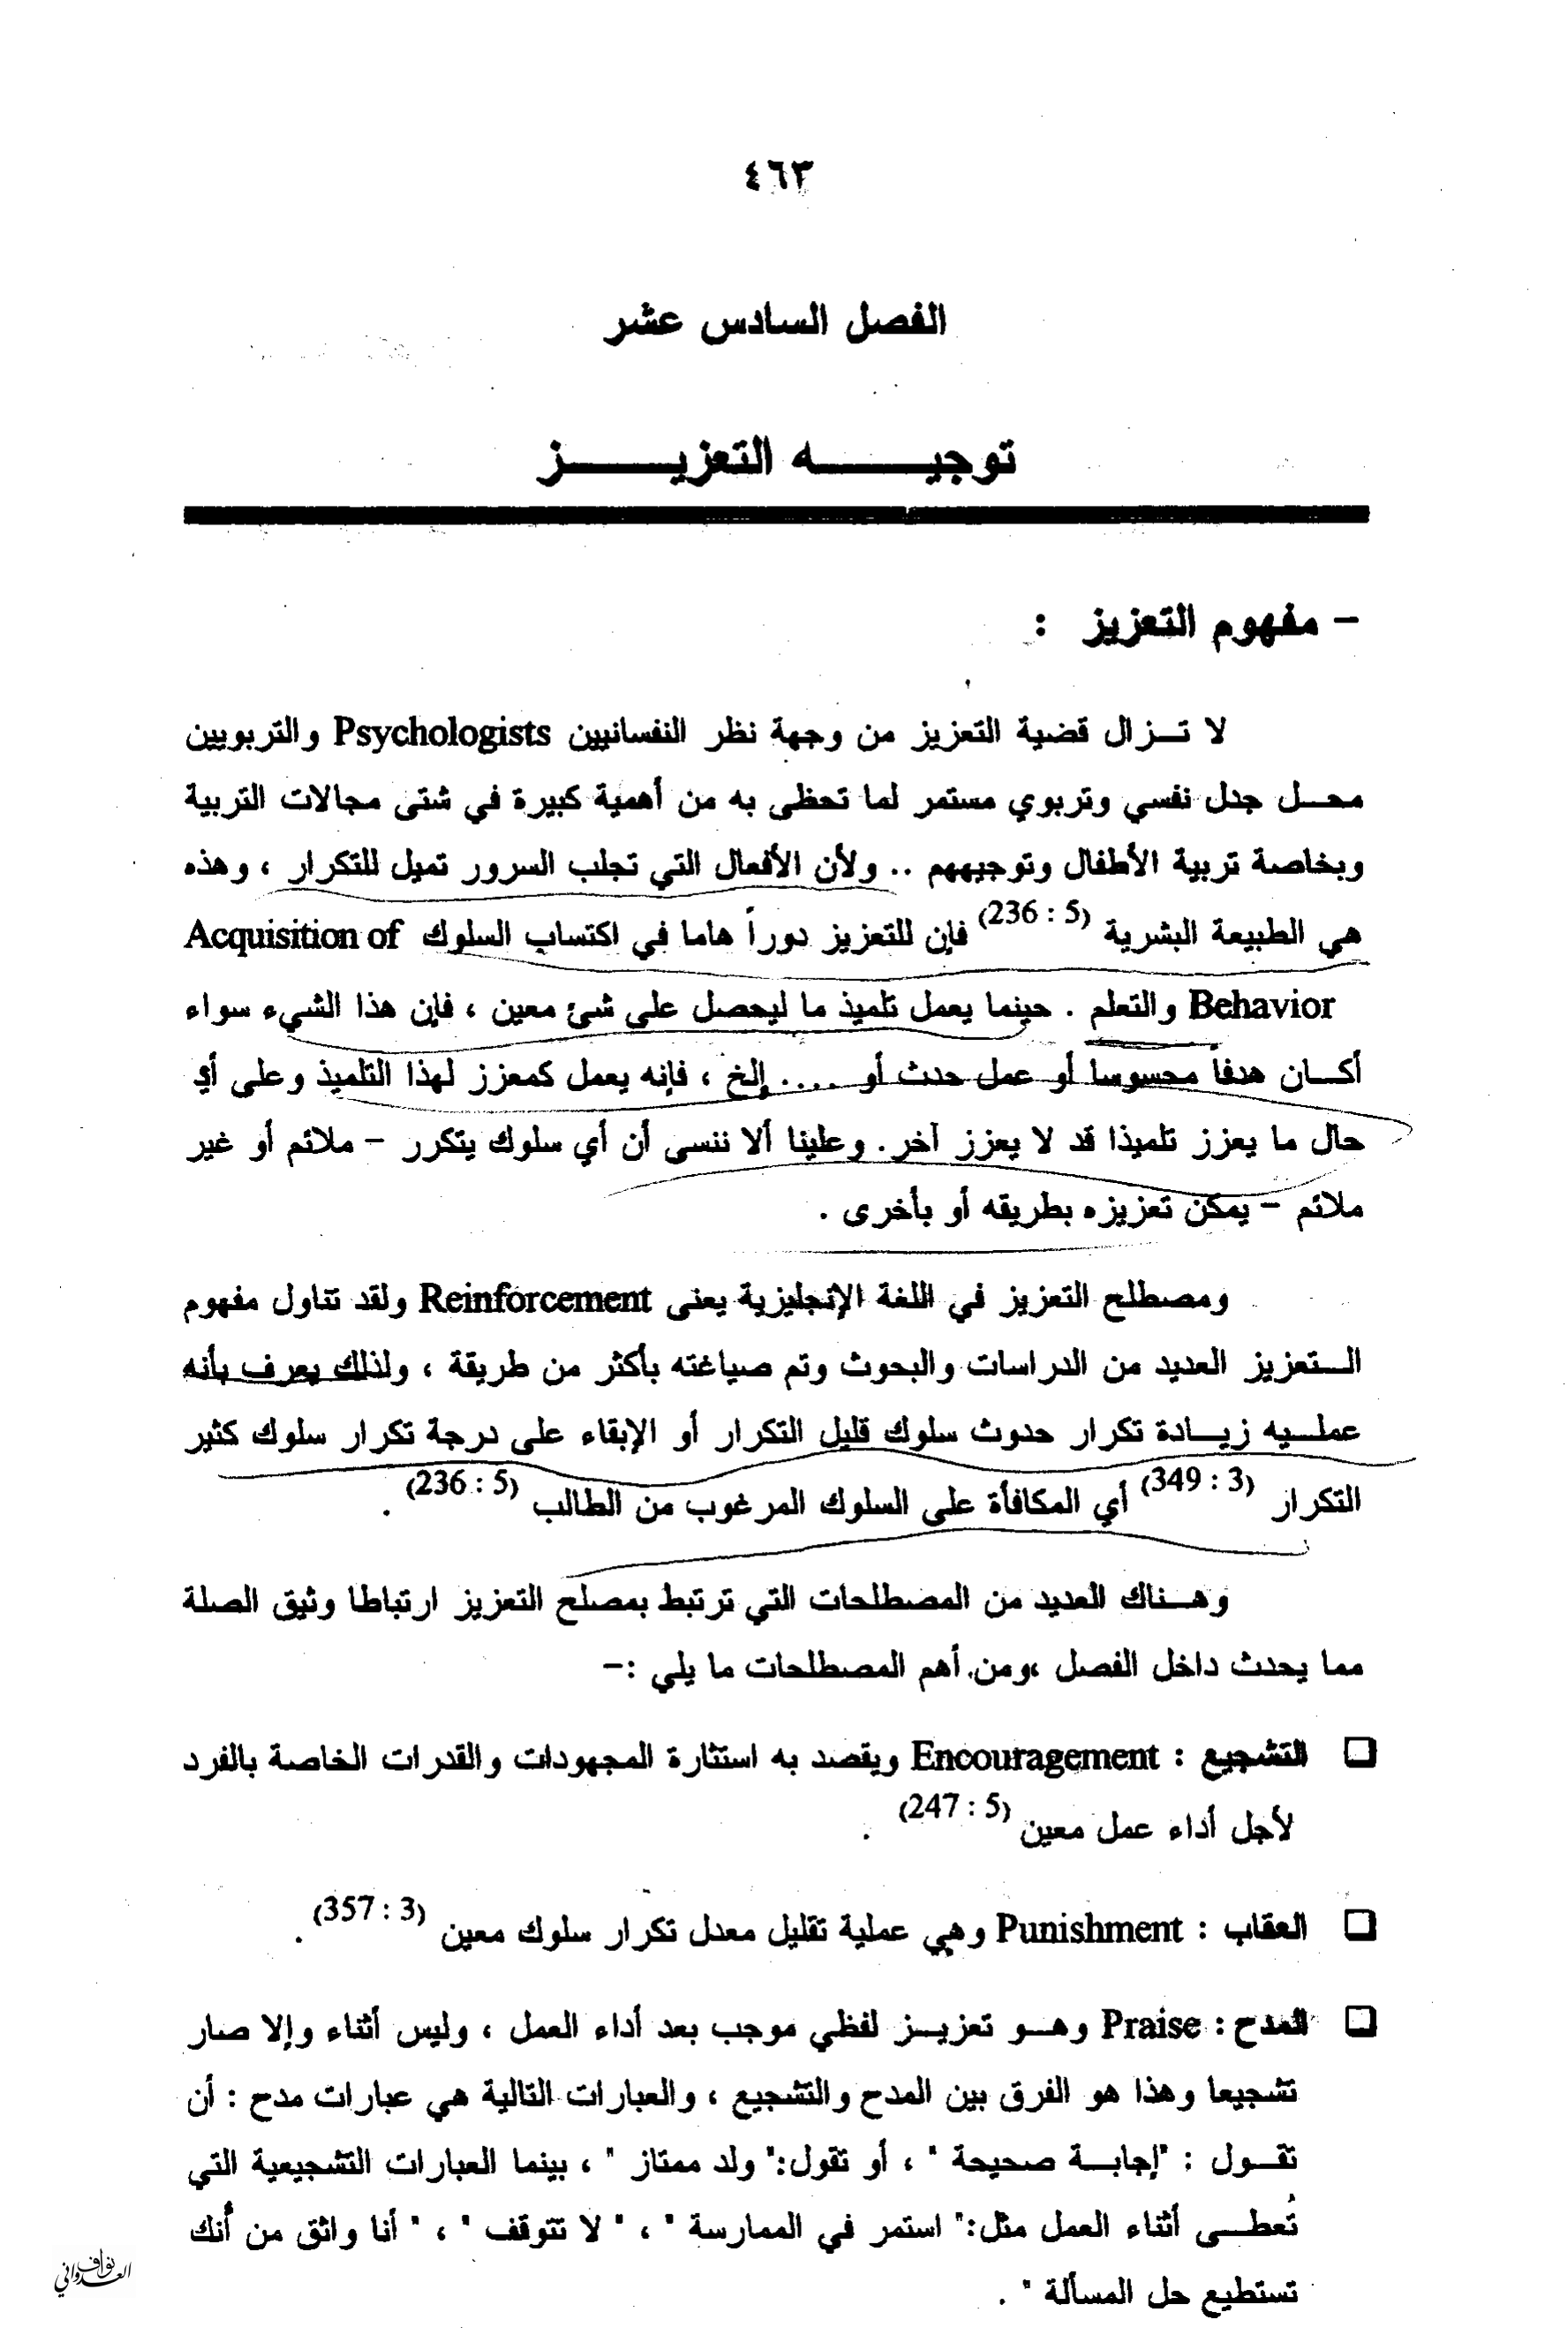 ٤٦٣
الفصل السادس عشر
توجيه التعزيز
– مفهوم التعزيز :
لا تزال قضية التعزيز من وجهة نظر النفسانيين Psychologists والتربويين
محل جدل نفسي وتربوي مستمر لما تحظى به من أهمية كبيرة في شتى مجالات التربية
وبخاصة تربية الأطفال وتوجيههم .. ولأن الأفعال التي تجلب السرور تميل للتكرار ، وهذه
هي الطبيعة البشرية (5 : 236) فإن للتعزيز دوراً هاما في اكتساب السلوك Acquisition of
Behavior والتعلم . حينما يعمل تلميذ ما ليحصل على شئ معين ، فإن هذا الشيء سواء
أكان هدفاً محسوسا أو عمل حدث أو .... إلخ ، فإنه يعمل كمعزز لهذا التلميذ وعلى أي
حال ما يعزز تلميذا قد لا يعزز آخر. وعلينا ألا ننسى أن أي سلوك يتكرر – ملائم أو غير
ملائم – يمكن تعزيزه بطريقه أو بأخرى .
ومصطلح التعزيز في اللغة الإنجليزية يعنى Reinforcement ولقد تناول مفهوم
التعزيز العديد من الدراسات والبحوث وتم صياغته بأكثر من طريقة ، ولذلك يعرف بأنه
عمليه زيادة تكرار حدوث سلوك قليل التكرار أو الإبقاء على درجة تكرار سلوك كثير
التكرار (3 : 349) أي المكافأة على السلوك المرغوب من الطالب (5 : 236) .
وهناك العديد من المصطلحات التي ترتبط بمصلح التعزيز ارتباطا وثيق الصلة
مما يحدث داخل الفصل ،ومن أهم المصطلحات ما يلي :–
❑ التشجيع : Encouragement ويقصد به استثارة المجهودات والقدرات الخاصة بالفرد
لأجل أداء عمل معين (5 : 247) .
❑ العقاب : Punishment وهي عملية تقليل معدل تكرار سلوك معين (3 : 357) .
❑ المدح : Praise وهو تعزيز لفظي موجب بعد أداء العمل ، وليس أثناء وإلا صار
تشجيعا وهذا هو الفرق بين المدح والتشجيع ، والعبارات التالية هي عبارات مدح : أن
تقول : "إجابة صحيحة " ، أو تقول:" ولد ممتاز " ، بينما العبارات التشجيعية التي
تُعطى أثناء العمل مثل:" استمر في الممارسة " ، " لا تتوقف " ، " أنا واثق من أنك
تستطيع حل المسألة " .
نواف
العدواني